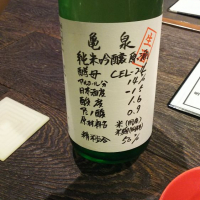 亀泉
生
純米吟醸原酒
酵母 CEL-24
アルコール分 14.
日本酒度
酸度 1.6
アミノ酸 0.9
原材料 米(国産)
精米歩合 50%